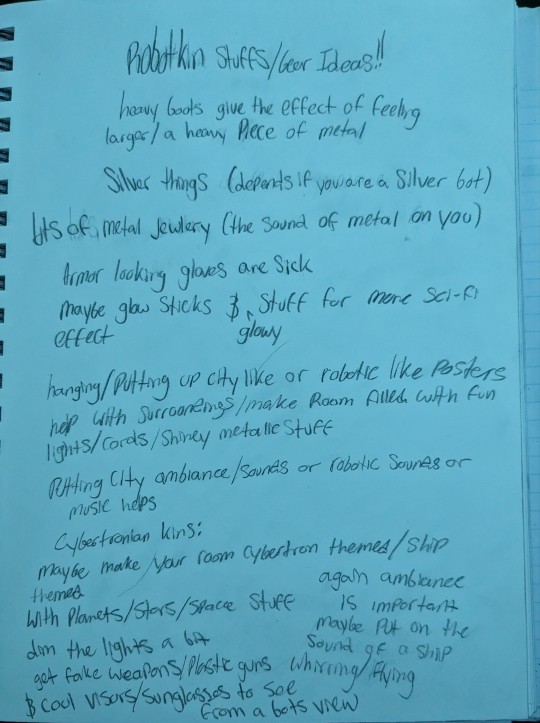 Robotkin stuffs/Gear Ideas!!
heavy boots give the effect of feeling
larger/a heavy Piece of metal
Silver things (depends if you are a Silver bot)
lots of metal Jewlery (the sound of metal on you)
Armor looking gloves are Sick
maybe glow Sticks & glowy Stuff for more Sci-Fi
effect
hanging/Putting up city like or robotic like Posters
help with Surroundings/make Room filled with fun
lights/Cords/Shiney metallic Stuff
Putting City ambiance/sounds or robotic Sounds or
music helps
Cybertronian kins:
maybe make your room Cybertron themes/Ship
themed
With Planets/Stars/Space Stuff
dim the lights a bit
again ambiance
is important
maybe Put on the
Sound of a Ship
whirring/flying
get fake weapons/Plastic guns
& Cool visors/sunglasses to See
from a bots view